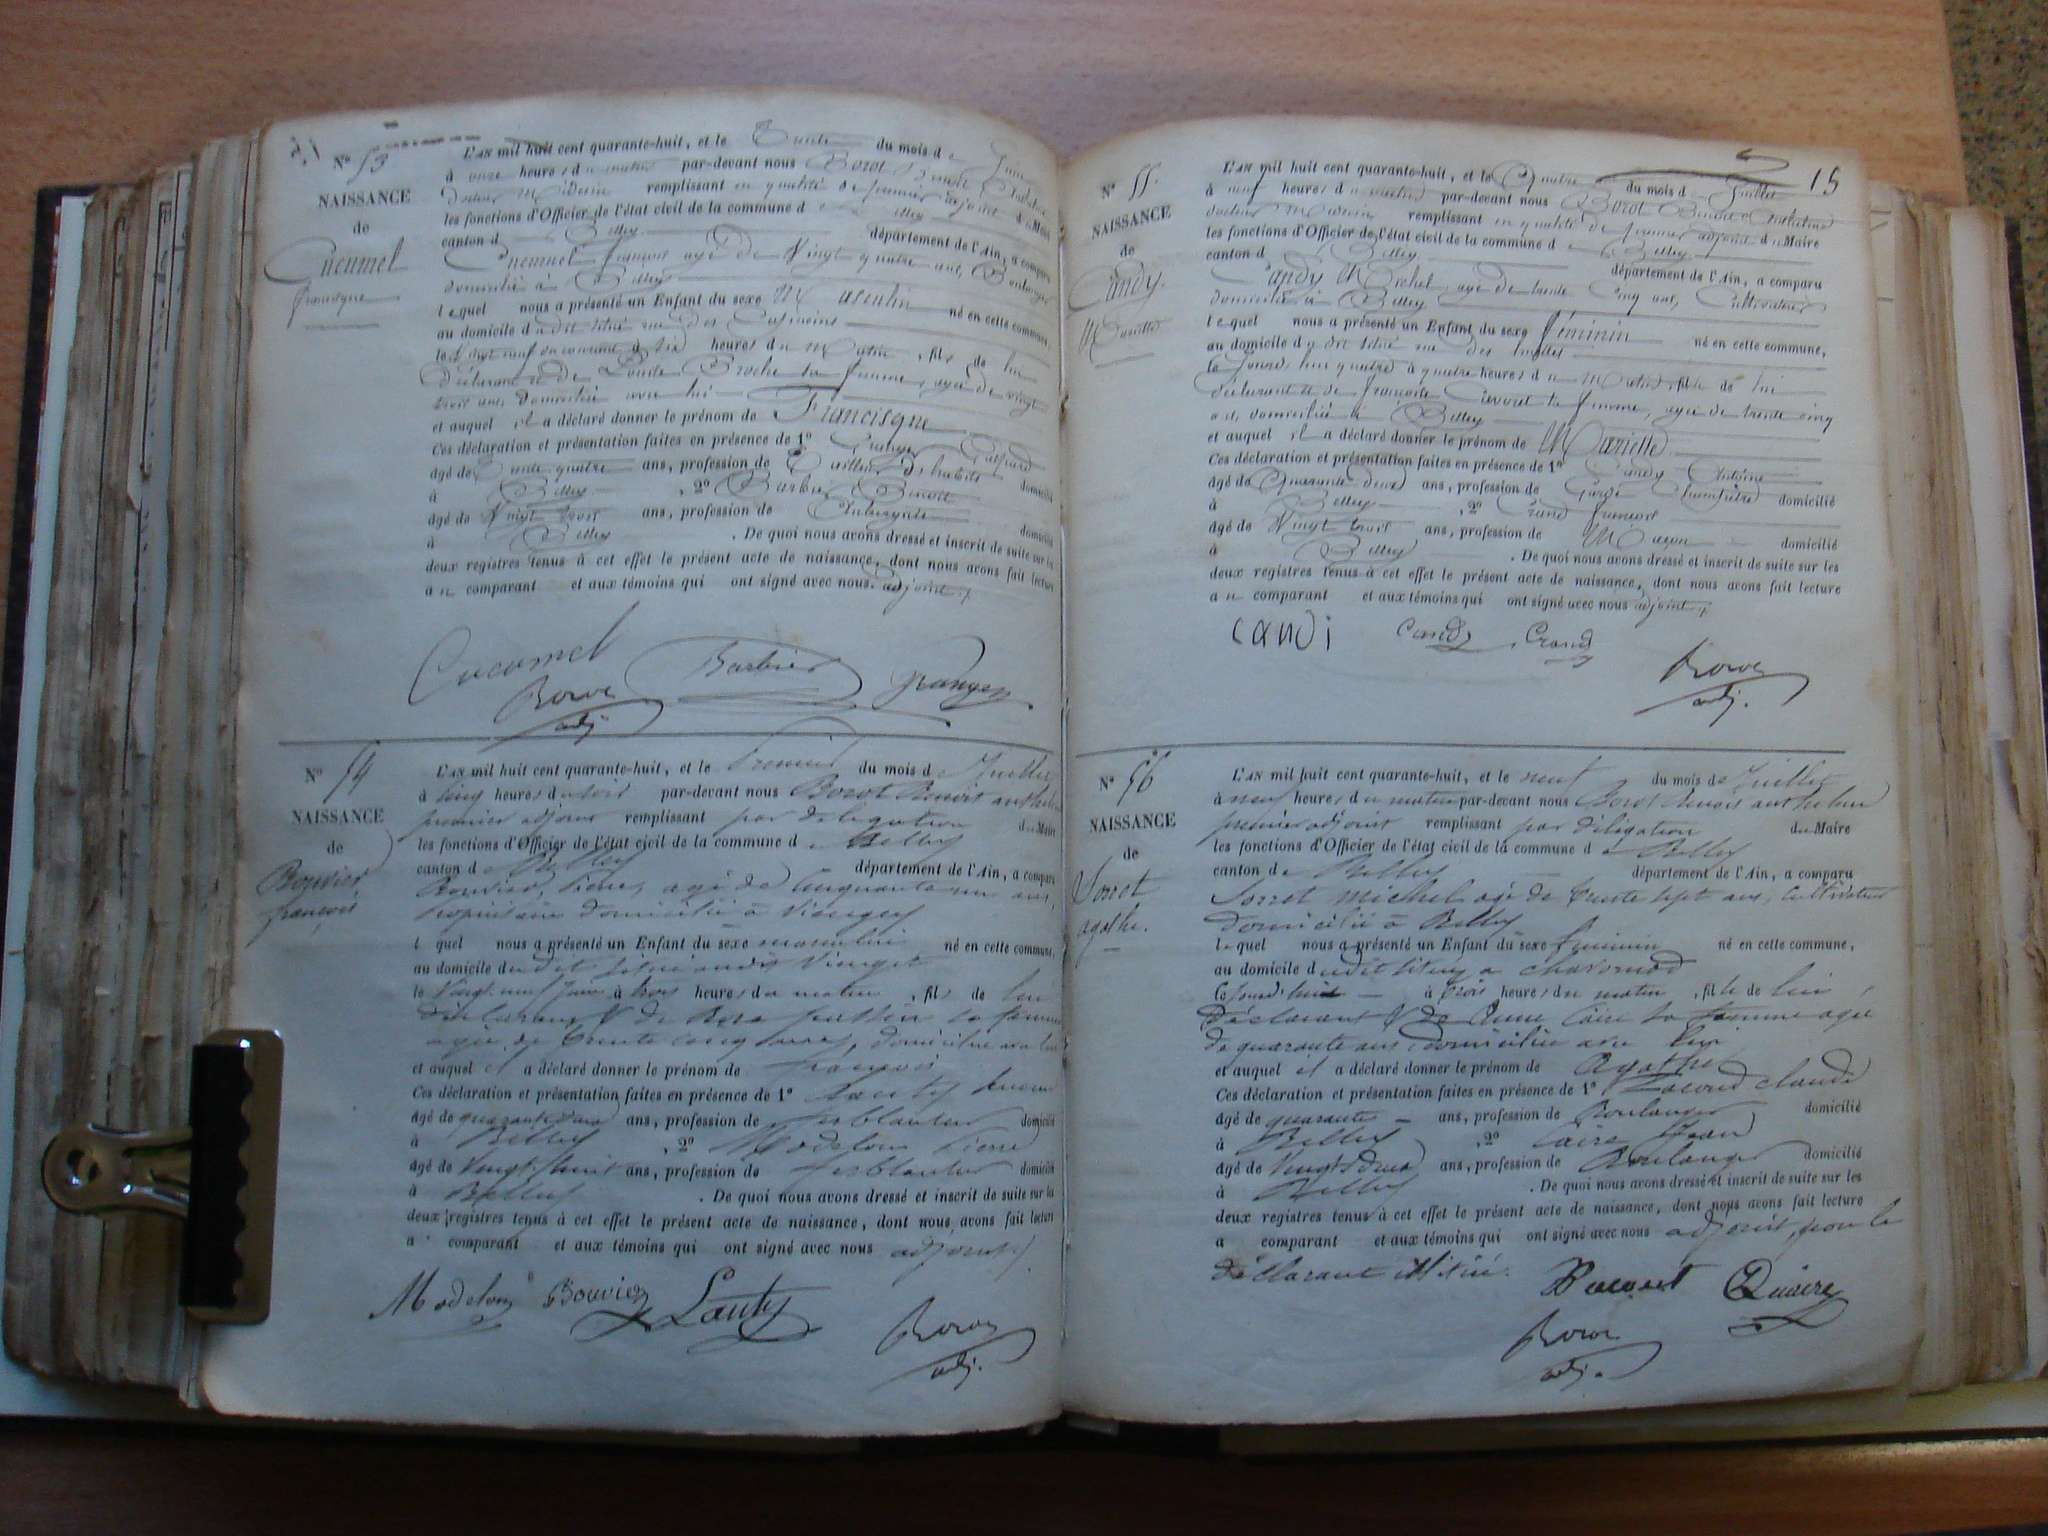 N° 53
NAISSANCE
de
Cucumel
francisque
L'AN mil huit cent quarante-huit, et le Trente du mois de Juin
à onze heures du matin par-devant nous Borot Benoit
docteur Médecin remplissant en qualité de premier adjoint du Maire
les fonctions d'Officier de l'état civil de la commune de Belley
canton de Belley département de l'Ain, a comparu
Cucumel françois agé de Vingt quatre ans, Boulanger
domicilié à Belley
lequel nous a présenté un Enfant du sexe Masculin né en cette commune,
au domicile dudit situé rue des Capucins
le Vingt neuf du courant à six heures du Matin, fils de lui
déclarant et de Louise Broche sa femme, agée de vingt
trois ans, domiciliée avec lui
et auquel il a déclaré donner le prénom de Francisque
Ces déclaration et présentation faites en présence de 1° Granger Gaspard
âgé de Trente quatre ans, profession de Tailleur d'habits domicilié
à Belley, 2° Barbier Benoit
âgé de Vingt trois ans, profession de Aubergiste domicilié
à Belley. De quoi nous avons dressé et inscrit de suite sur les
deux registres tenus à cet effet le présent acte de naissance, dont nous avons fait lecture
au comparant et aux témoins qui ont signé avec nous adjoint
Cucumel Barbier Granger
Borot
adj.
N° 54
NAISSANCE
de
Bouvier
françois
L'AN mil huit cent quarante-huit, et le Premier du mois de Juillet
à cinq heures du soir par-devant nous Borot Benoit anthelme
premier adjoint remplissant par délégation du Maire
les fonctions d'Officier de l'état civil de la commune de Belley
canton de Belley département de l'Ain, a comparu
Bouvier, Pierre, agé de Cinquante un ans,
propriétaire domicilié à
lequel nous a présenté un Enfant du sexe masculin né en cette commune,
au domicile dudit situé audit
le Vingt neuf Juin à trois heures du matin, fils de lui
déclarant & de Rose sa femme
agée de trente cinq ans, domiciliée avec lui
et auquel il a déclaré donner le prénom de françois
Ces déclaration et présentation faites en présence de 1° Lauty
âgé de quarante deux ans, profession de ferblantier domicilié
à Belley, 2° Modelon Pierre
âgé de Vingt huit ans, profession de ferblantier domicilié
à Belley. De quoi nous avons dressé et inscrit de suite sur les
deux registres tenus à cet effet le présent acte de naissance, dont nous avons fait lecture
a comparant et aux témoins qui ont signé avec nous adjoint
Modelon Bouvier Lauty
Borot
adj.
15
N° 55.
NAISSANCE
de
Candy.
Mariette
L'AN mil huit cent quarante-huit, et le Quatre du mois de Juillet
à neuf heures du matin par-devant nous Borot Benoit Anthelme
docteur Médecin remplissant en qualité de premier adjoint du Maire
les fonctions d'Officier de l'état civil de la commune de Belley
canton de Belley département de l'Ain, a comparu
Candy Michel, agé de trente Cinq ans, Cultivateur
domicilié à Belley
lequel nous a présenté un Enfant du sexe féminin né en cette commune,
au domicile dudit situé rue des
le Jourd'hui quatre à quatre heures du Matin, fille de lui
déclarant et de françoise sa femme, agée de trente cinq
ans, domiciliée à Belley
et auquel il a déclaré donner le prénom de Mariette
Ces déclaration et présentation faites en présence de 1° Candy Antoine
âgé de Quarante deux ans, profession de Garde Champêtre domicilié
à Belley, 2° Crand françois
âgé de Vingt trois ans, profession de Maçon domicilié
à Belley. De quoi nous avons dressé et inscrit de suite sur les
deux registres tenus à cet effet le présent acte de naissance, dont nous avons fait lecture
au comparant et aux témoins qui ont signé avec nous adjoint
candi Candy Crand
Borot
adj.
N° 56
NAISSANCE
de
Sorret
agathe.
L'AN mil huit cent quarante-huit, et le neuf du mois de Juillet
à neuf heures du matin par-devant nous Borot Benoit anthelme
premier adjoint remplissant par délégation du Maire
les fonctions d'Officier de l'état civil de la commune de Belley
canton de Belley département de l'Ain, a comparu
Sorret michel agé de trente sept ans, cultivateur
domicilié à Belley
lequel nous a présenté un Enfant du sexe féminin né en cette commune,
au domicile dudit situé a
Ce jourd'hui à trois heures du matin, fille de lui,
déclarant & de Anne Caire sa femme agée
de quarante ans domiciliée avec lui
et auquel il a déclaré donner le prénom de Agathe
Ces déclaration et présentation faites en présence de 1° claude
âgé de quarante ans, profession de Boulanger domicilié
à Belley, 2° Caire Jean
âgé de Vingt deux ans, profession de Boulanger domicilié
à Belley. De quoi nous avons dressé et inscrit de suite sur les
deux registres tenus à cet effet le présent acte de naissance, dont nous avons fait lecture
a comparant et aux témoins qui ont signé avec nous adjoint, non le
déclarant illitéré.
Borot
adj.